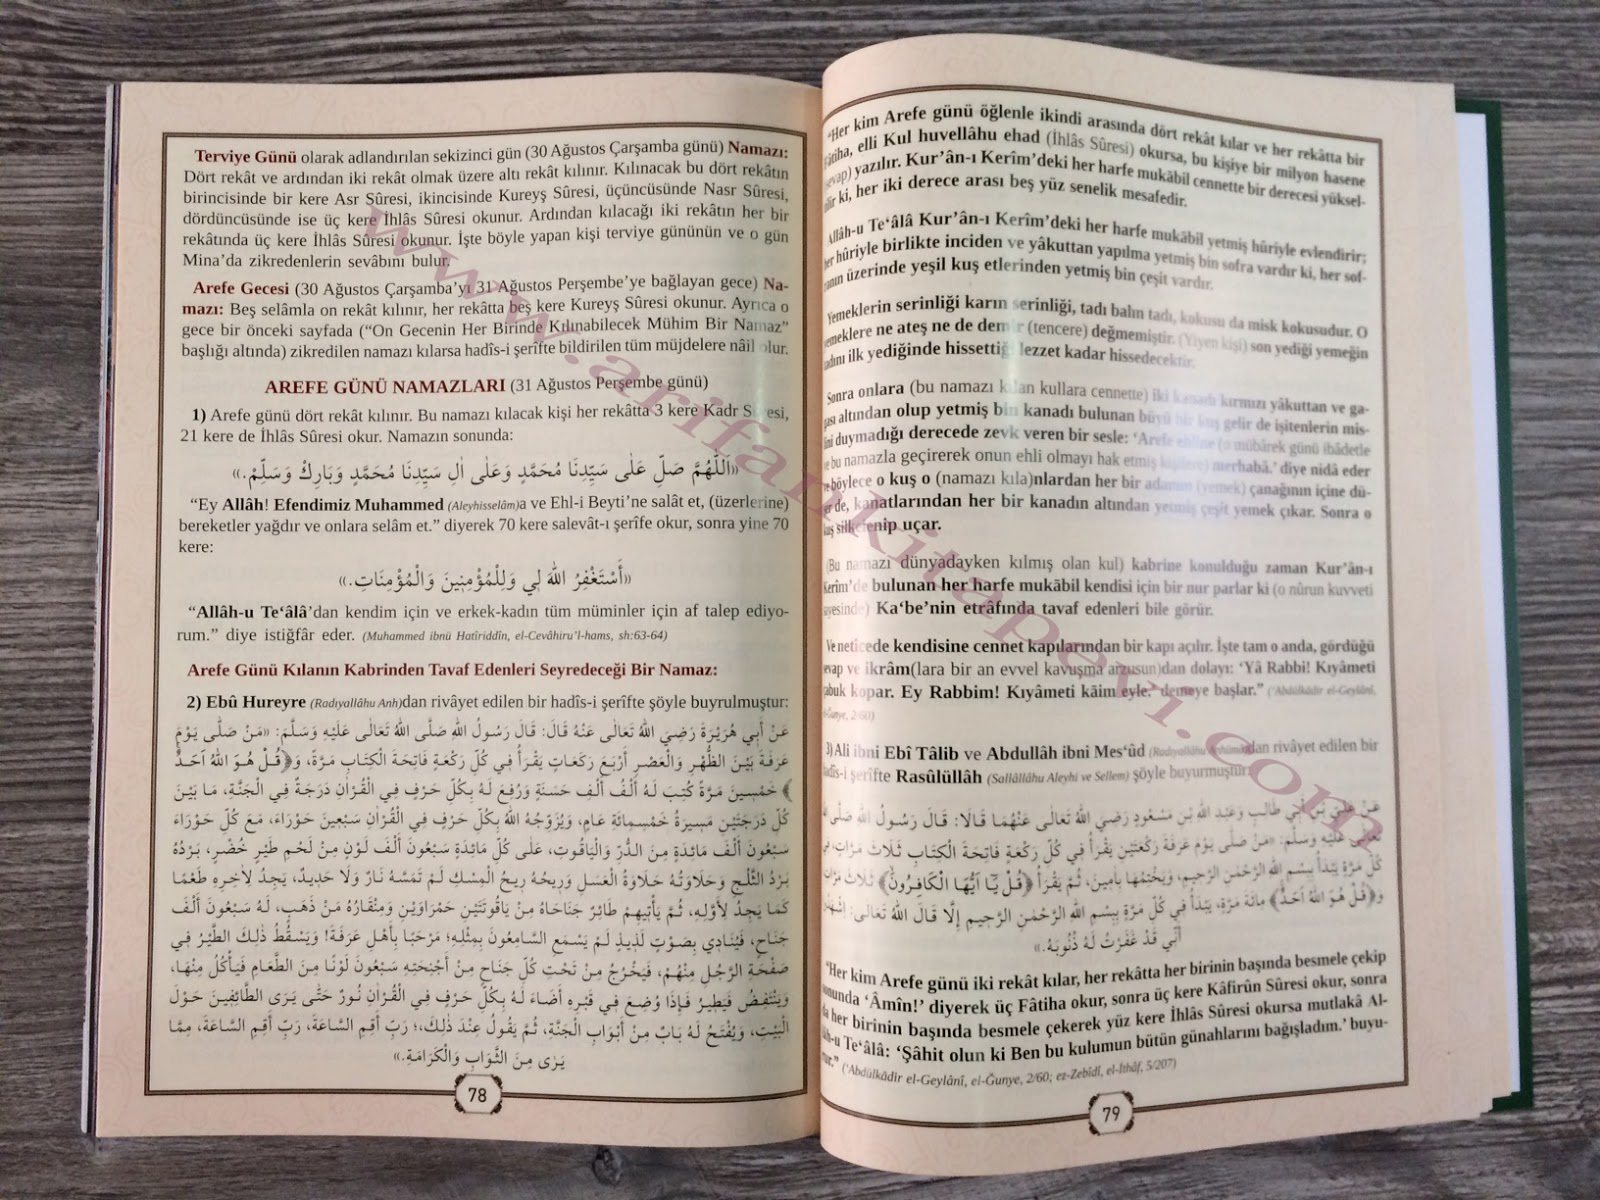 Terviye Günü olarak adlandırılan sekizinci gün (30 Ağustos Çarşamba günü) Namazı:
Dört rekât ve ardından iki rekât olmak üzere altı rekât kılınır. Kılınacak bu dört rekâtın
birincisinde bir kere Asr Sûresi, ikincisinde Kureyş Sûresi, üçüncüsünde Nasr Sûresi,
dördüncüsünde ise üç kere İhlâs Sûresi okunur. Ardından kılacağı iki rekâtın her bir
rekâtında üç kere İhlâs Sûresi okunur. İşte böyle yapan kişi terviye gününün ve o gün
Mina'da zikredenlerin sevâbını bulur.
Arefe Gecesi (30 Ağustos Çarşamba'yı 31 Ağustos Perşembe'ye bağlayan gece) Na-
mazı: Beş selâmla on rekât kılınır, her rekâtta beş kere Kureyş Sûresi okunur. Ayrıca o
gece bir önceki sayfada ("On Gecenin Her Birinde Kılınabilecek Mühim Bir Namaz"
başlığı altında) zikredilen namazı kılarsa hadîs-i şerifte bildirilen tüm müjdelere nâil olur.
AREFE GÜNÜ NAMAZLARI (31 Ağustos Perşembe günü)
1) Arefe günü dört rekât kılınır. Bu namazı kılacak kişi her rekâtta 3 kere Kadr Sûresi,
21 kere de İhlâs Sûresi okur. Namazın sonunda:
«اَللّٰهُمَّ صَلِّ عَلٰى سَيِّدِنَا مُحَمَّدٍ وَعَلٰى اٰلِ سَيِّدِنَا مُحَمَّدٍ وَبَارِكْ وَسَلِّمْ.»
"Ey Allâh! Efendimiz Muhammed (Aleyhisselâm)a ve Ehl-i Beyti'ne salât et, (üzerlerine)
bereketler yağdır ve onlara selâm et." diyerek 70 kere salevât-ı şerîfe okur, sonra yine 70
kere:
«أَسْتَغْفِرُ اللّٰهَ لِي وَلِلْمُؤْمِنِينَ وَالْمُؤْمِنَاتِ.»
"Allâh-u Te'âlâ'dan kendim için ve erkek-kadın tüm müminler için af talep ediyo-
rum." diye istiğfâr eder. (Muhammed ibnü Hatîriddîn, el-Cevâhiru'l-hams, sh:63-64)
Arefe Günü Kılanın Kabrinden Tavaf Edenleri Seyredeceği Bir Namaz:
2) Ebû Hureyre (Radıyallâhu Anh)dan rivâyet edilen bir hadîs-i şerîfte şöyle buyrulmuştur:
عَنْ أَبِي هُرَيْرَةَ رَضِيَ اللّٰهُ تَعَالٰى عَنْهُ قَالَ: قَالَ رَسُولُ اللّٰهِ صَلَّى اللّٰهُ تَعَالٰى عَلَيْهِ وَسَلَّمَ: «مَنْ صَلّٰى يَوْمَ
عَرَفَةَ بَيْنَ الظُّهْرِ وَالْعَصْرِ أَرْبَعَ رَكَعَاتٍ يَقْرَأُ فِي كُلِّ رَكْعَةٍ فَاتِحَةَ الْكِتَابِ مَرَّةً، وَ﴿قُلْ هُوَ اللّٰهُ اَحَدٌ
﴾ خَمْسِينَ مَرَّةً كُتِبَ لَهُ أَلْفُ أَلْفِ حَسَنَةٍ وَرُفِعَ لَهُ بِكُلِّ حَرْفٍ فِي الْقُرْاٰنِ دَرَجَةٌ فِي الْجَنَّةِ، مَا بَيْنَ
كُلِّ دَرَجَتَيْنِ مَسِيرَةُ خَمْسِمِائَةِ عَامٍ، وَيُزَوِّجُهُ اللّٰهُ بِكُلِّ حَرْفٍ فِي الْقُرْاٰنِ سَبْعِينَ حَوْرَاءَ، مَعَ كُلِّ حَوْرَاءَ
سَبْعُونَ أَلْفَ مَائِدَةٍ مِنَ الدُّرِّ وَالْيَاقُوتِ، عَلٰى كُلِّ مَائِدَةٍ سَبْعُونَ أَلْفَ لَوْنٍ مِنْ لَحْمِ طَيْرٍ خُضْرٍ، بَرْدُهُ
بَرْدُ الثَّلْجِ وَحَلَاوَتُهُ حَلَاوَةُ الْعَسَلِ وَرِيحُهُ رِيحُ الْمِسْكِ لَمْ تَمَسَّهُ نَارٌ وَلَا حَدِيدٌ، يَجِدُ لِاٰخِرِهِ طَعْمًا
كَمَا يَجِدُ لِأَوَّلِهِ، ثُمَّ يَأْتِيهِمْ طَائِرٌ جَنَاحَاهُ مِنْ يَاقُوتَتَيْنِ حَمْرَاوَيْنِ وَمِنْقَارُهُ مِنْ ذَهَبٍ، لَهُ سَبْعُونَ أَلْفَ
جَنَاحٍ، فَيُنَادِي بِصَوْتٍ لَذِيذٍ لَمْ يَسْمَعِ السَّامِعُونَ بِمِثْلِهِ؛ مَرْحَبًا بِأَهْلِ عَرَفَةَ! وَيَسْقُطُ ذٰلِكَ الطَّيْرُ فِي
صَفْحَةِ الرَّجُلِ مِنْهُمْ، فَيَخْرُجُ مِنْ تَحْتِ كُلِّ جَنَاحٍ مِنْ أَجْنِحَتِهِ سَبْعُونَ لَوْنًا مِنَ الطَّعَامِ فَيَأْكُلُ مِنْهَا،
وَيَنْتَفِضُ فَيَطِيرُ فَإِذَا وُضِعَ فِي قَبْرِهِ أَضَاءَ لَهُ بِكُلِّ حَرْفٍ فِي الْقُرْاٰنِ نُورٌ حَتّٰى يَرَى الطَّائِفِينَ حَوْلَ
الْبَيْتِ، وَيُفْتَحُ لَهُ بَابٌ مِنْ أَبْوَابِ الْجَنَّةِ، ثُمَّ يَقُولُ عِنْدَ ذٰلِكَ،: رَبِّ أَقِمِ السَّاعَةَ، رَبِّ أَقِمِ السَّاعَةَ، مِمَّا
يَرٰى مِنَ الثَّوَابِ وَالْكَرَامَةِ.»
78
"Her kim Arefe günü öğlenle ikindi arasında dört rekât kılar ve her rekâtta bir
Fâtiha, elli Kul huvellâhu ehad (İhlâs Sûresi) okursa, bu kişiye bir milyon hasene
(sevap) yazılır. Kur'ân-ı Kerîm'deki her harfe mukâbil cennette bir derecesi yüksel-
ilir ki, her iki derece arası beş yüz senelik mesafedir.
Allâh-u Te'âlâ Kur'ân-ı Kerîm'deki her harfe mukâbil yetmiş hûriyle evlendirir;
her hûriyle birlikte inciden ve yâkuttan yapılma yetmiş bin sofra vardır ki, her sof-
ranın üzerinde yeşil kuş etlerinden yetmiş bin çeşit vardır.
Yemeklerin serinliği karın serinliği, tadı balın tadı, kokusu da misk kokusudur. O
yemeklere ne ateş ne de demir (tencere) değmemiştir. (Yiyen kişi) son yediği yemeğin
tadını ilk yediğinde hissettiği lezzet kadar hissedecektir.
Sonra onlara (bu namazı kılan kullara cennette) iki kanadı kırmızı yâkuttan ve ga-
gası altından olup yetmiş bin kanadı bulunan büyü bir kuş gelir de işitenlerin mis-
lini duymadığı derecede zevk veren bir sesle: 'Arefe ehline (o mübârek günü ibâdetle
ve bu namazla geçirerek onun ehli olmayı hak etmiş kişilere) merhabâ.' diye nidâ eder
ve böylece o kuş o (namazı kıla)nlardan her bir adamın (yemek) çanağının içine dü-
şer de, kanatlarından her bir kanadın altından yetmiş çeşit yemek çıkar. Sonra o
kuş silkelenip uçar.
(Bu namazı dünyadayken kılmış olan kul) kabrine konulduğu zaman Kur'ân-ı
Kerîm'de bulunan her harfe mukâbil kendisi için bir nur parlar ki (o nûrun kuvveti
sayesinde) Ka'be'nin etrâfında tavaf edenleri bile görür.
Ve neticede kendisine cennet kapılarından bir kapı açılır. İşte tam o anda, gördüğü
sevap ve ikrâm(lara bir an evvel kavuşma arzusun)dan dolayı: 'Yâ Rabbi! Kıyâmeti
çabuk kopar. Ey Rabbim! Kıyâmeti kâim eyle.' demeye başlar." ('Abdülkâdir el-Geylânî,
el-Ğunye, 2/60)
3) Ali ibni Ebî Tâlib ve Abdullâh ibni Mes'ûd (Radıyallâhu Anhümâ)dan rivâyet edilen bir
hadîs-i şerîfte Rasûlüllâh (Sallâllâhu Aleyhi ve Sellem) şöyle buyurmuştur:
عَنْ عَلِيِّ بْنِ أَبِي طَالِبٍ وَعَبْدِ اللّٰهِ بْنِ مَسْعُودٍ رَضِيَ اللّٰهُ تَعَالٰى عَنْهُمَا قَالَا: قَالَ رَسُولُ اللّٰهِ صَلَّى اللّٰهُ
تَعَالٰى عَلَيْهِ وَسَلَّمَ: «مَنْ صَلّٰى يَوْمَ عَرَفَةَ رَكْعَتَيْنِ يَقْرَأُ فِي كُلِّ رَكْعَةٍ فَاتِحَةَ الْكِتَابِ ثَلَاثَ مَرَّاتٍ، فِي
كُلِّ مَرَّةٍ يَبْدَأُ بِبِسْمِ اللّٰهِ الرَّحْمٰنِ الرَّحِيمِ، وَيَخْتِمُهَا بِاٰمِينَ، ثُمَّ يَقْرَأُ ﴿قُلْ يَا اَيُّهَا الْكَافِرُونَ﴾ ثَلَاثَ مَرَّاتٍ
وَ﴿قُلْ هُوَ اللّٰهُ اَحَدٌ﴾ مِائَةَ مَرَّةٍ، يَبْدَأُ فِي كُلِّ مَرَّةٍ بِبِسْمِ اللّٰهِ الرَّحْمٰنِ الرَّحِيمِ إِلَّا قَالَ اللّٰهُ تَعَالٰى: اِشْهَدُوا
أَنِّي قَدْ غَفَرْتُ لَهُ ذُنُوبَهُ.»
"Her kim Arefe günü iki rekât kılar, her rekâtta her birinin başında besmele çekip
sonunda 'Âmîn!' diyerek üç Fâtiha okur, sonra üç kere Kâfirûn Sûresi okur, sonra
da her birinin başında besmele çekerek yüz kere İhlâs Sûresi okursa mutlakâ Al-
lâh-u Te'âlâ: 'Şâhit olun ki Ben bu kulumun bütün günahlarını bağışladım.' buyu-
rur." ('Abdülkâdir el-Geylânî, el-Ğunye, 2/60; ez-Zebîdî, el-İthâf, 5/207)
79
www.arifankitapevi.com